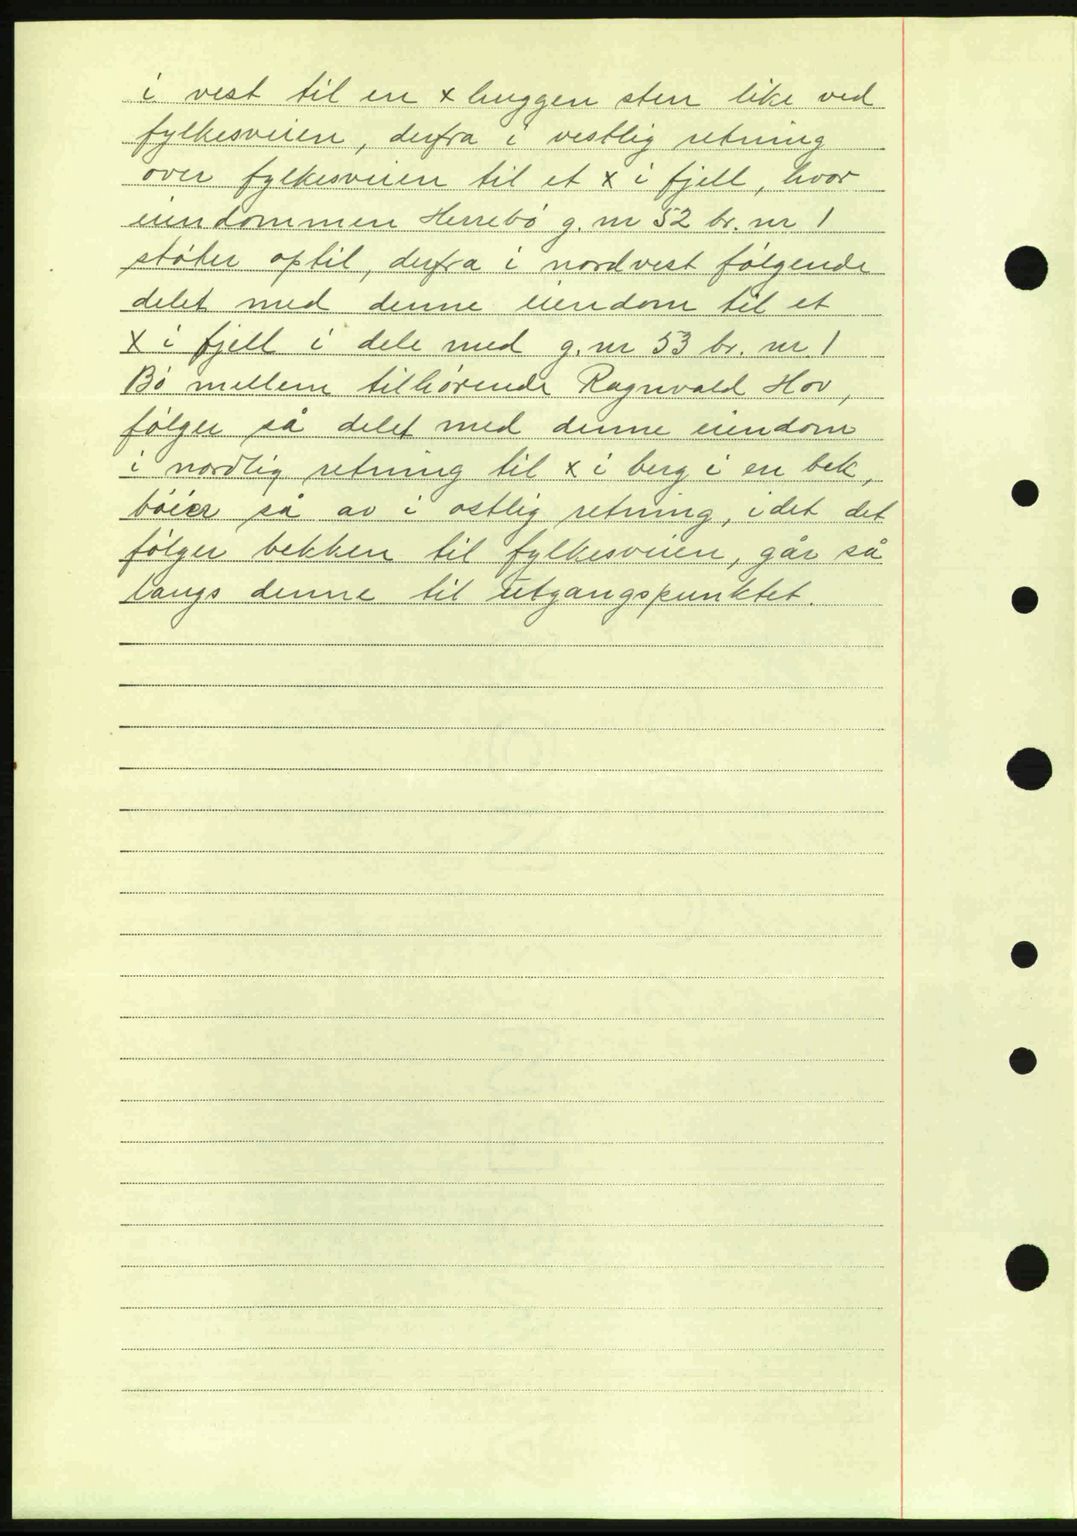 i vest til en x huggen sten like ved
fylkesveien, derfra i vestlig retning
over fylkesveien til et x i fjell, hvor
eiendommen Herrebö g. nr 52 br. nr 1
stöter optil, derfra i nordvest fölgende
delet med denne eiendom til et
x i fjell i dele med g. nr 53 br. nr. 1
Bö mellem tilhörende Ragnvald Hov,
fölger så delet med denne eiendom
i nordlig retning til x i berg i en bek,
böier så av i ostlig retning, idet det
fölger bekken til fylkesveien, går så
langs denne til utgangspunktet.